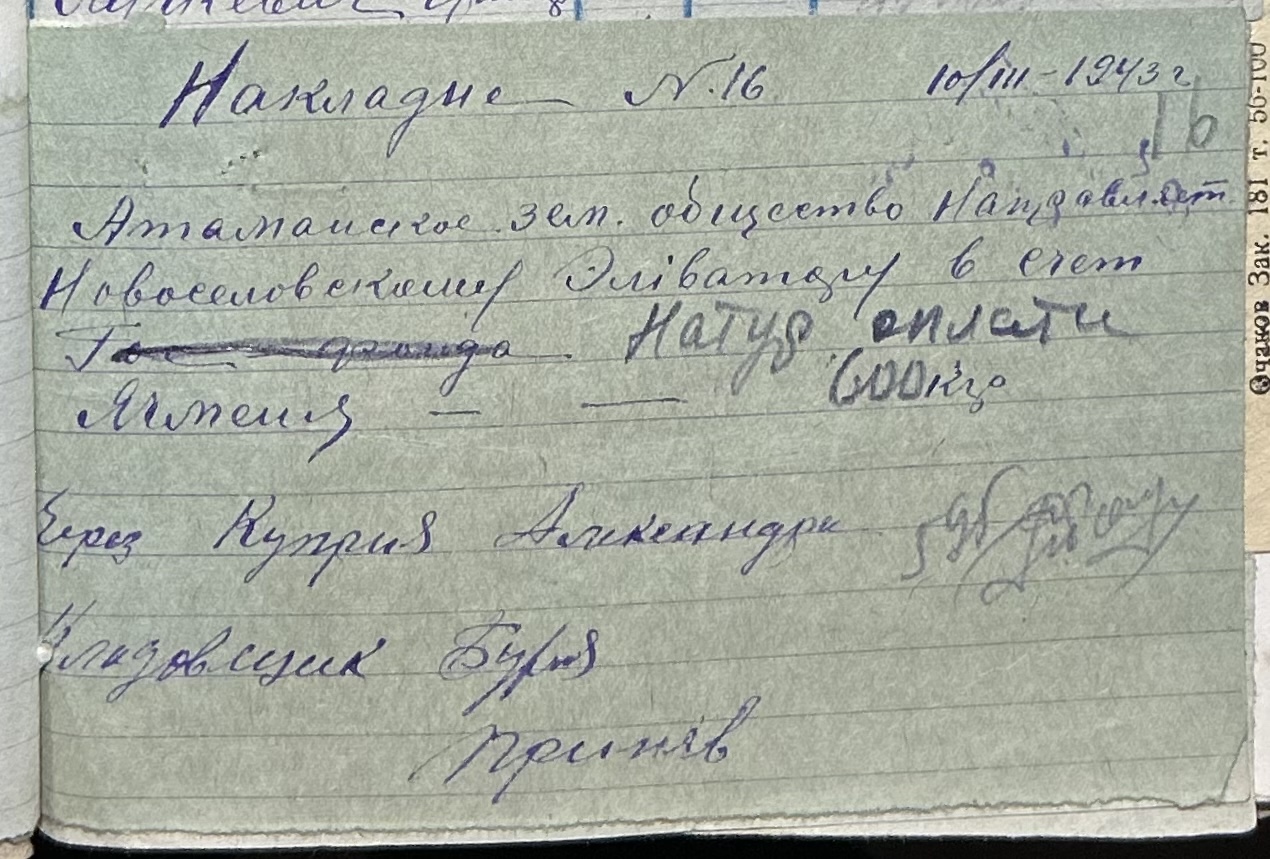 Накладне № 16 10/III-1943 г
16
Атаманское зем. общество направляет
Новоселовскому Элiватору в счет
Гос фонда Натур оплати
Ячменя — — 600 кгр
Через Куприя Александра
Кладовщик Буря
Принів
Очаков Зак. 181 т. 50-100